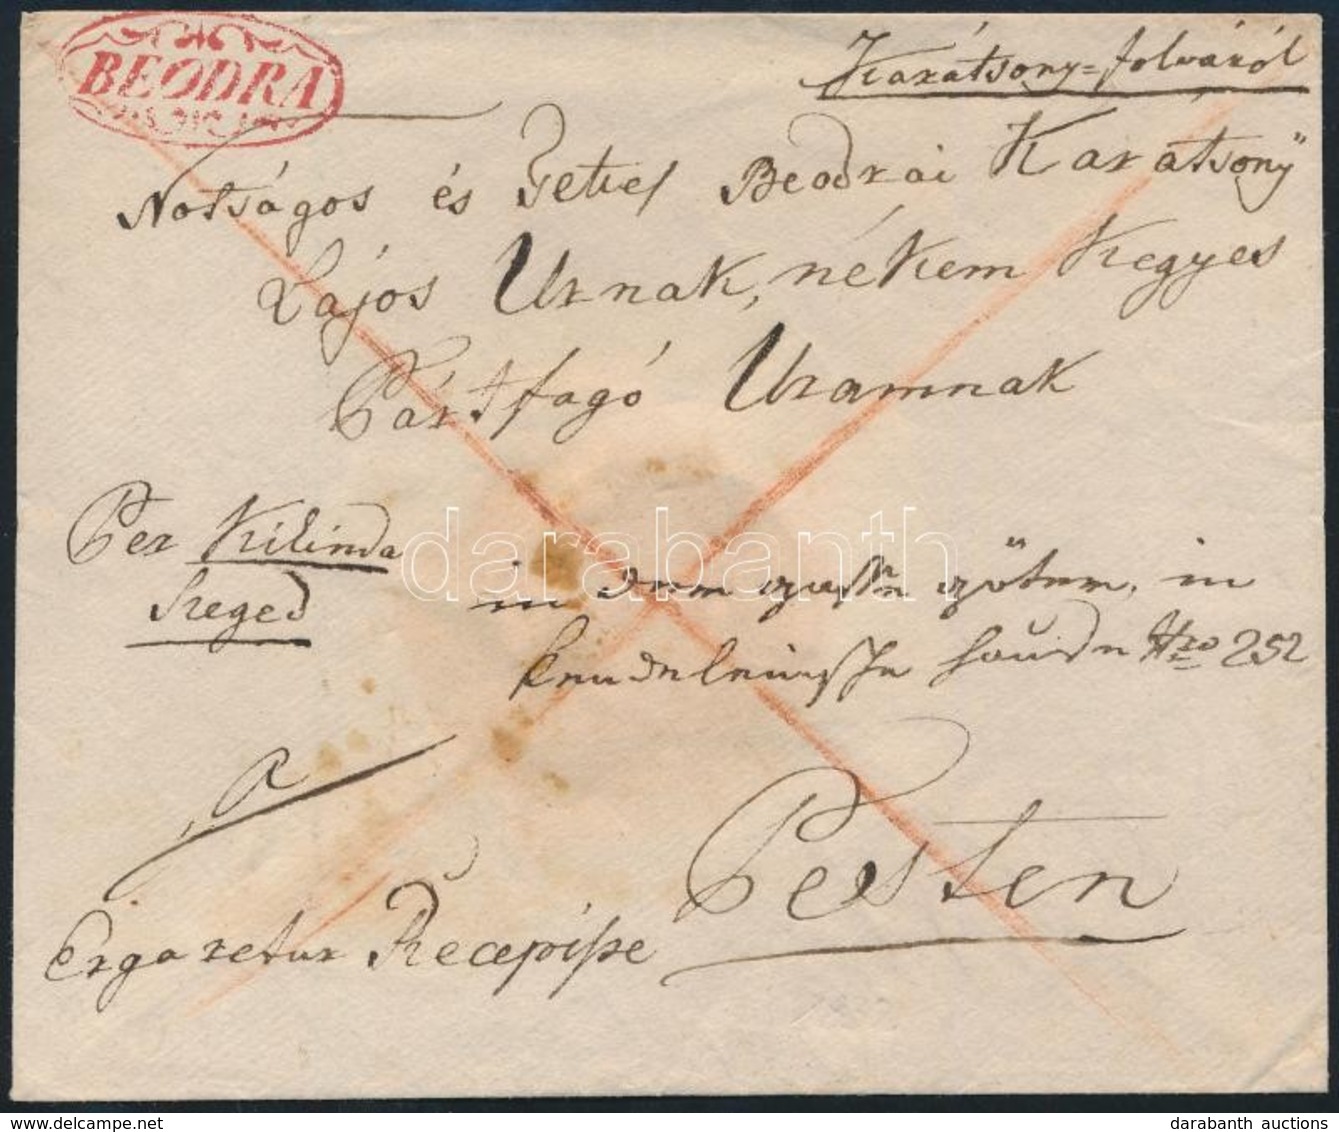 BEODRA
Karátsony=folváról
Notságos és Tettes Beodrai Karátsonÿ
Lajos Urnak, nékem Kegyes
Pártfogó Uramnak
Per Kikinda
Szeged
in
in
Nro 252
Pesten
Erga retur Recepisse
darabanth
darabanth auctions